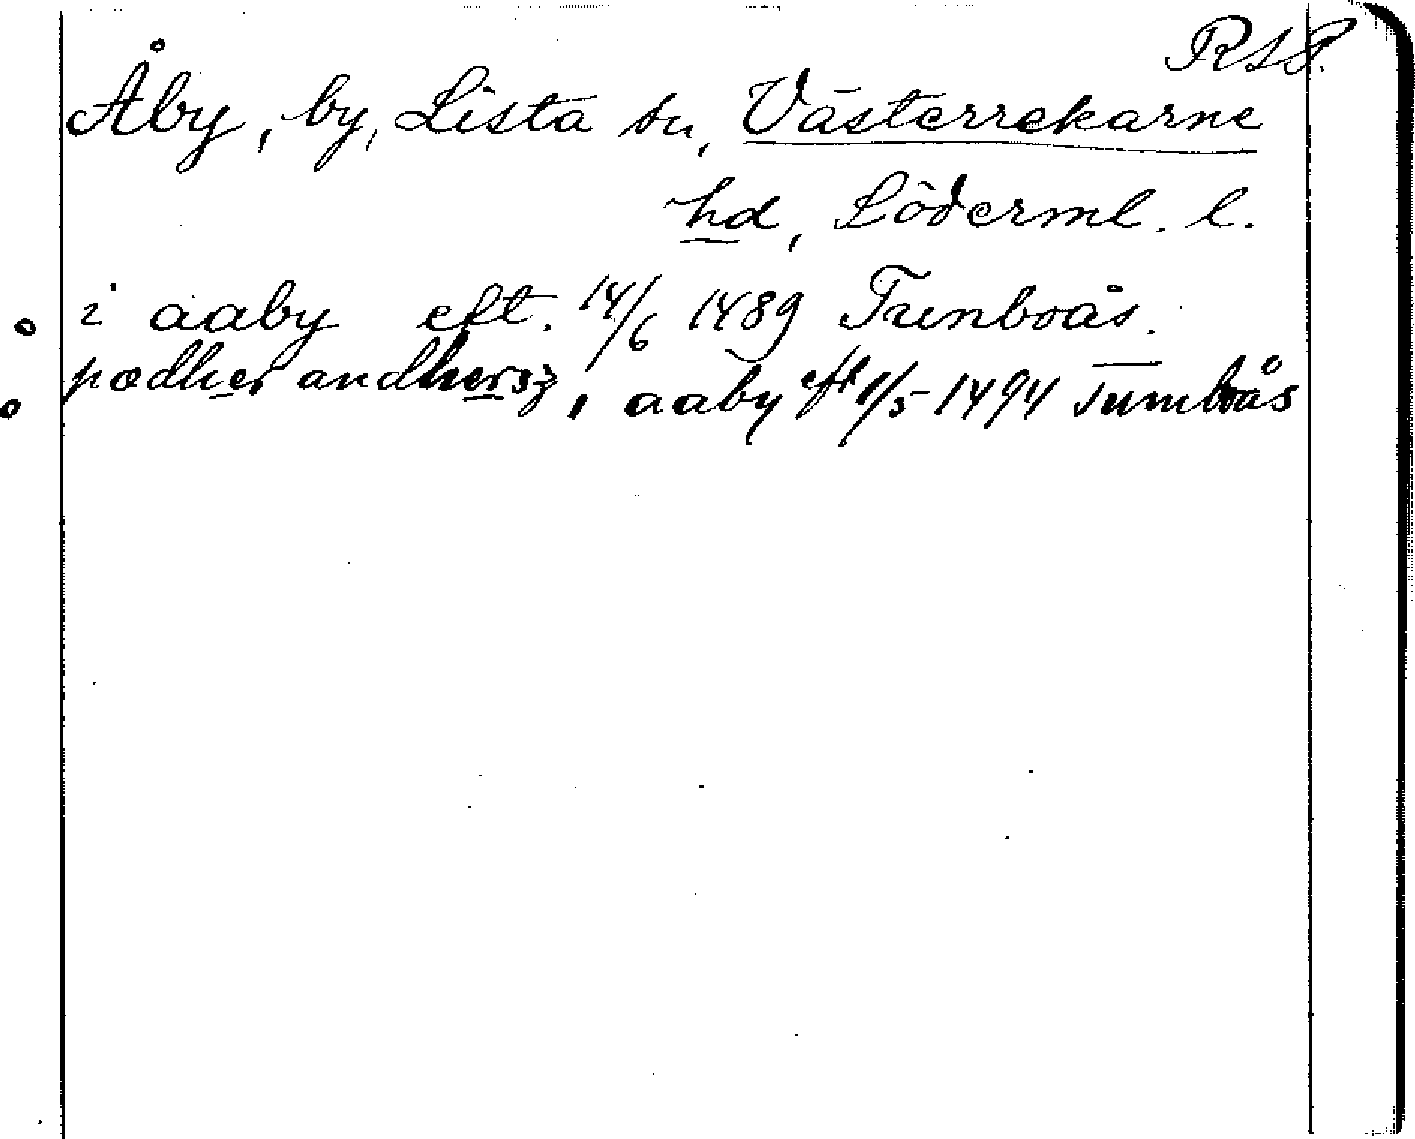 RAP.
Åby, by, Lista sn, Västerrekarne
hd, Söderml. l.
i aaby eft. 14/6 1489 Tumboås.
pædher andhersz, i aaby eft 1/5 1494 Tumboås